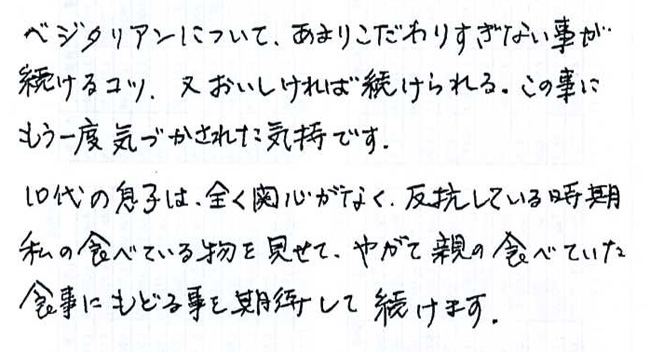 ベジタリアンについて、あまりこだわりすぎない事が
続けるコツ、又おいしければ続けられる。この事に
もう一度気づかされた気持です.
10代の息子は、全く関心がなく、反抗している時期
私の食べている物を見せて、やがて親の食べていた
食事にもどる事を期待して続けます.